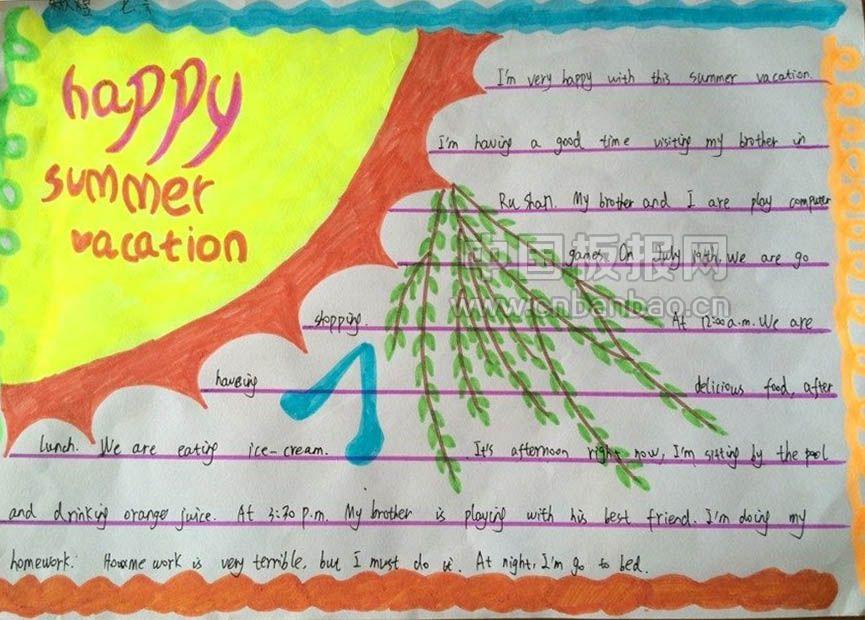 happy
summer
vacation
I'm very happy with this summer vacation.
I'm having a good time visiting my brother in
Rushan. My brother and I are play computer
games On July 19th, we are go
shopping. At 12:00a.m. We are
having delicious food, after
lunch. We are eating ice-cream. It's afternoon right now, I'm sitting by the pool
and drinking orange juice. At 3:20 p.m. My brother is playing with his best friend. I'm doing my
homework. Housme work is very terrible, but I must do it. At night, I'm go to bed.
中国板报网
www.cnbanbao.cn